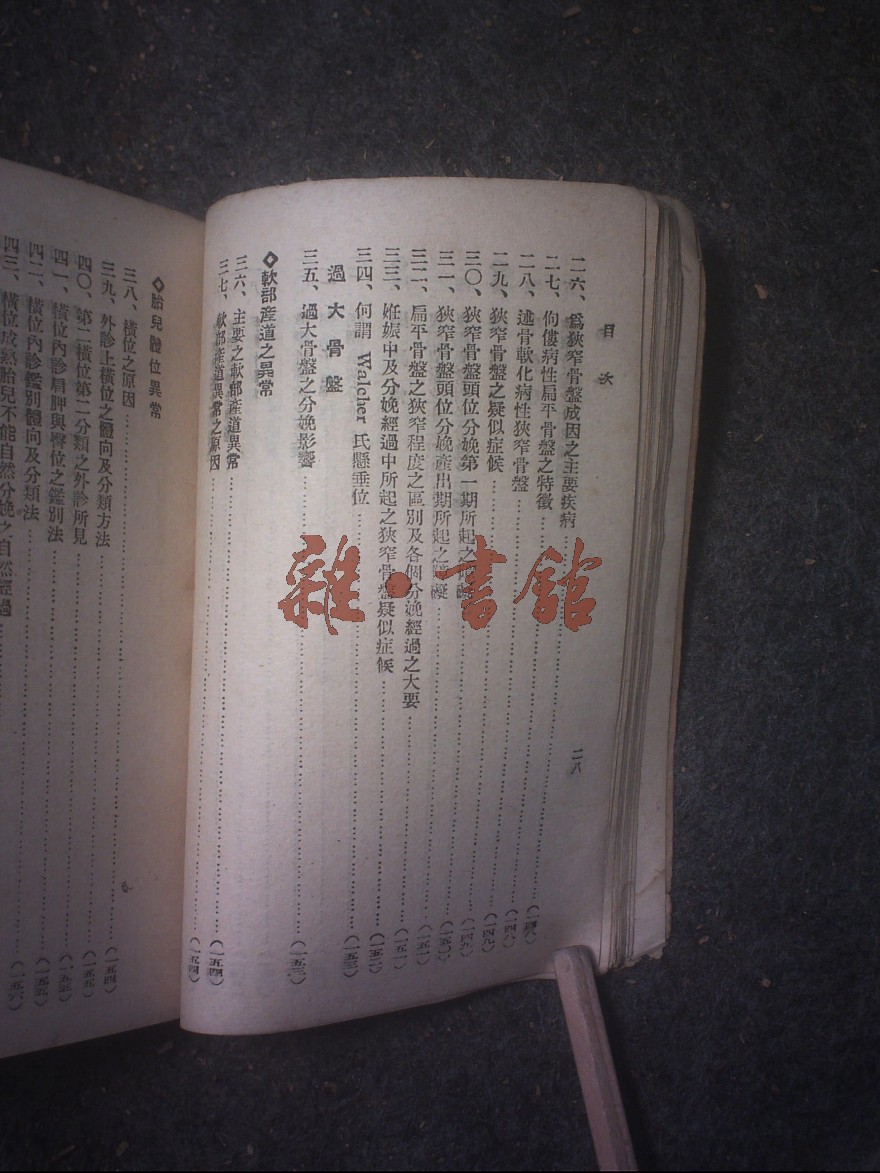 目次
二八
二六、爲狹窄骨盤成因之主要疾病……（一四八）
二七、佝僂病性扁平骨盤之特徵……（一四八）
二八、述骨軟化病性狹窄骨盤……（一四九）
二九、狹窄骨盤之疑似症候……（一四九）
三〇、狹窄骨盤頭位分娩第一期所起之
三一、狹窄骨盤頭位分娩產出期所起之障礙……（一五〇）
三二、扁平骨盤之狹窄程度之區別及各個分娩經過之大要……（一五一）
三三、姙娠中及分娩經過中所起之狹窄骨盤疑似症候……（一五二）
三四、何謂 Walcher 氏懸垂位……（一五三）
過大骨盤
三五、過大骨盤之分娩影響……（一五三）
◇軟部產道之異常
三六、主要之軟部產道異常……（一五四）
三七、軟部產道異常之原因……（一五四）
◇胎兒體位異常
三八、橫位之原因……（一五四）
三九、外診上橫位之體向及分類方法……（一五五）
四〇、第二橫位第二分類之外診所見……（一五五）
四一、橫位內診肩胛與臀位之鑑別法
四二、橫位內診鑑別體向及分類法……（一五五）
四三、橫位成熟胎兒不能自然分娩之自然經過……（一五六）
雜·書館